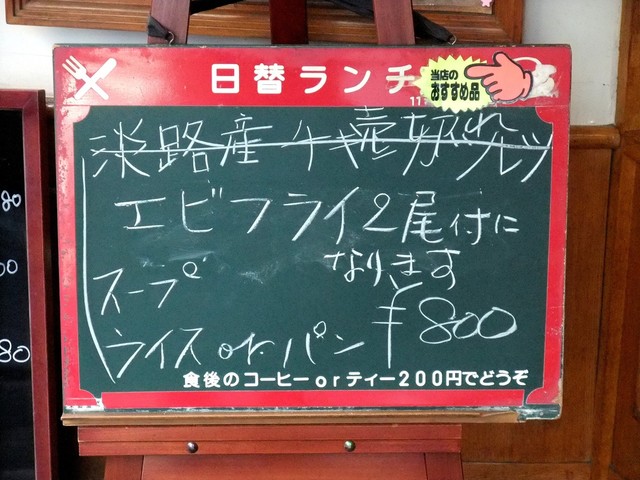 日替ランチ
当店の
おすすめ品
11
淡路産 売切れ
エビフライ2尾付に
なります
スープ
ライス or パン ¥800
食後のコーヒーorティー200円でどうぞ
80
00
80